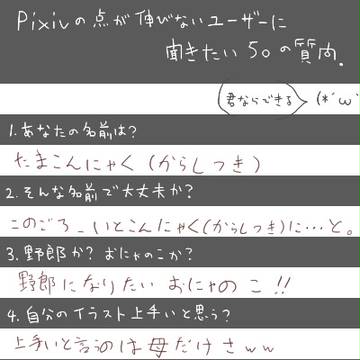 Pixivの点が伸びないユーザーに
聞きたい50の質問.
君ならできる (*´ω`
1.あなたの名前は?
たまこんにゃく(からしつき)
2.そんな名前で大丈夫か?
このごろ_いとこんにゃく(からしつき)に…と。
3.野郎か?おにゃのこか?
野郎になりたいおにゃのこ!!
4.自分のイラスト上手いと思う?
上手いと言うのは母だけさww